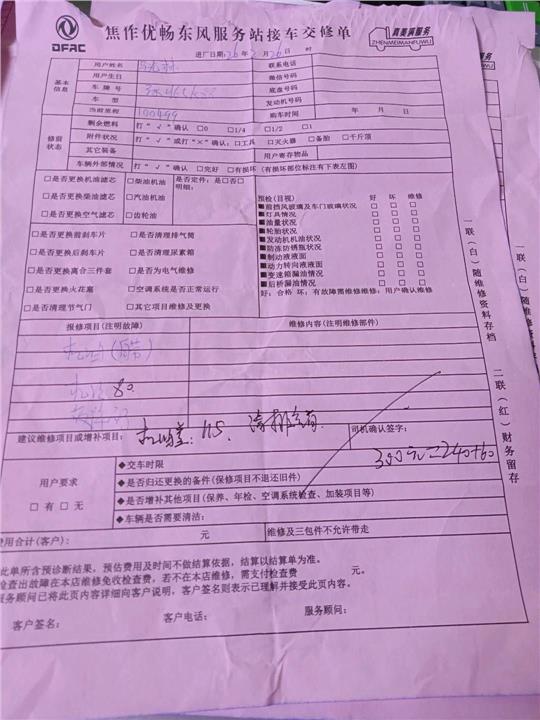 DFAC
焦作优畅东风服务站接车交修单
真美满服务
ZHENMEIMANFUWU
进厂日期:26年2月26日 时
基本信息
用户姓名
联系电话
用户生日
微信号码
车牌号
底盘号码
车型
发动机号码
当前里程 100499
购车时间 年 月 日
修前状态
剩余燃料 打“√”确认 □0 □1/4 □1/2 □1
附件状况 打“√”或打“×”确认:□工具 □灭火器 □备胎 □千斤顶
其它装备
用户寄存物品
车辆外部情况 打“√”确认 □完好 □有损坏 (有损坏部位标注有下表左图)
□是否更换机油滤芯 □柴油机油 是否定件:是□否□
明细:
□是否更换柴油滤芯 □汽油机油
□是否更换空气滤芯 □齿轮油
□是否更换前刹车片 □是否清理排气筒
□是否更换后刹车片 □是否清理尿素箱
□是否更换离合三件套 □是否为电气维修
□是否更换火花塞 □空调系统是否正常运行
□是否清理节气门 □其它项目维修及更换
预检(目视) 好 坏 维修
■前挡风玻璃及车门玻璃状况 □ □ □
■灯具情况 □ □ □
■油量状况 □ □ □
■轮胎状况 □ □ □
■发动机机油状况 □ □ □
■防冻防锈瓶状况 □ □ □
■制动液液面 □ □ □
■动力转向液液面 □ □ □
■变速箱漏油情况 □ □ □
■后桥漏油情况 □ □ □
好:合格 坏:有故障需维修维修:用户确认维修
报修项目(注明故障)
维修内容(注明维修部件)
80
建议维修项目或增补项目:
115.
司机确认签字:
300元=240+60
用户要求
□有 □无
◆交车时限
◆是否归还更换的备件(保修项目不退还旧件)
◆是否增补其他项目(保养、年检、空调系统检查、加装项目等)
◆车辆是否需要清洁:
费用合计(客户): 元
维修及三包件不允许带走
此单所含预诊断结果,预估费用及时间不做结算依据,结算以结算单为准。
检查出故障在本店维修免收检查费,若不在本店维修,需支付检查费 元。
服务顾问已将此页内容详细向客户说明,客户签名则表示已理解并接受此页内容。
客户签名: 客户电话: 服务顾问:
一联(白)随维修资料存档 二联(红)财务留存